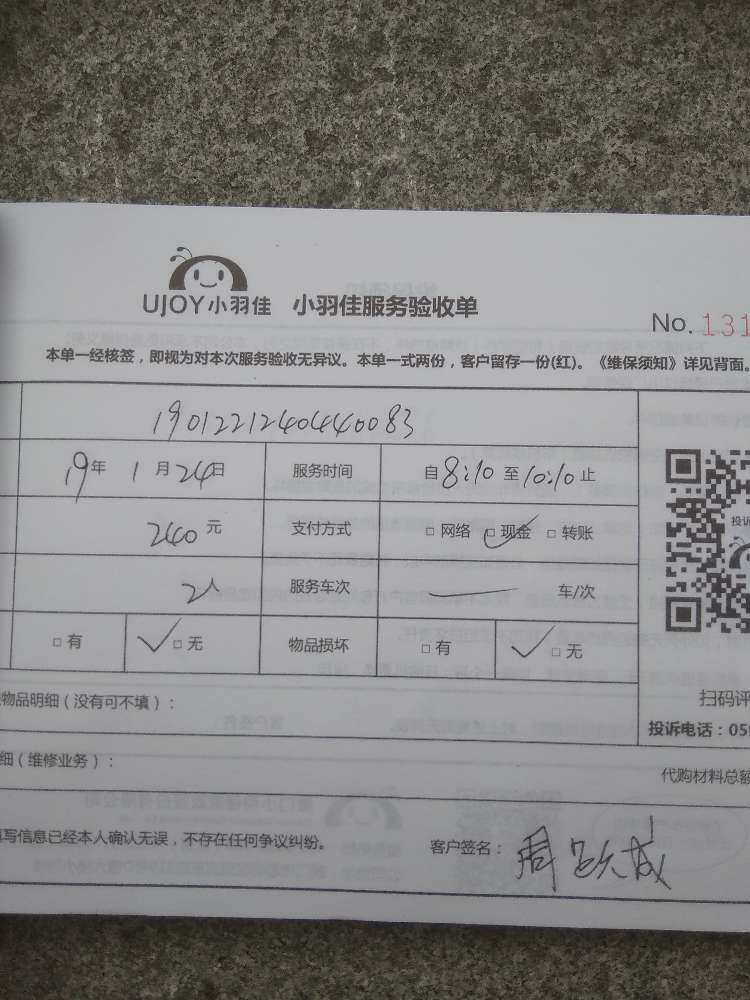 UJOY小羽佳 小羽佳服务验收单
No. 131
本单一经核签，即视为对本次服务验收无异议。本单一式两份，客户留存一份(红)。《维保须知》详见背面。
19012212404440083
19年 1月 24日 服务时间 自8:10至10:10止
240元 支付方式 □网络 □现金 □转账
2人 服务车次 车/次
□有 □无 物品损坏 □有 □无
物品明细（没有可不填）：
扫码评
投诉电话：059
细（维修业务）：
代购材料总额
填写信息已经本人确认无误，不存在任何争议纠纷。
客户签名：周跃成